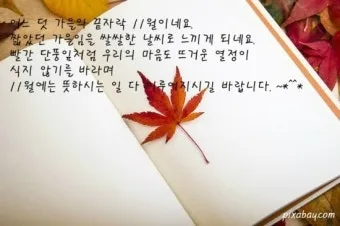 어느 덧 가을의 끝자락 11월이네요.
짧았던 가을임을 쌀쌀한 날씨로 느끼게 되네요.
빨간 단풍잎처럼 우리의 마음도 뜨거운 열정이
식지 않기를 바라며
11월에는 뜻하시는 일 다 이루어지시길 바랍니다. ~*^^*
pixabay.com